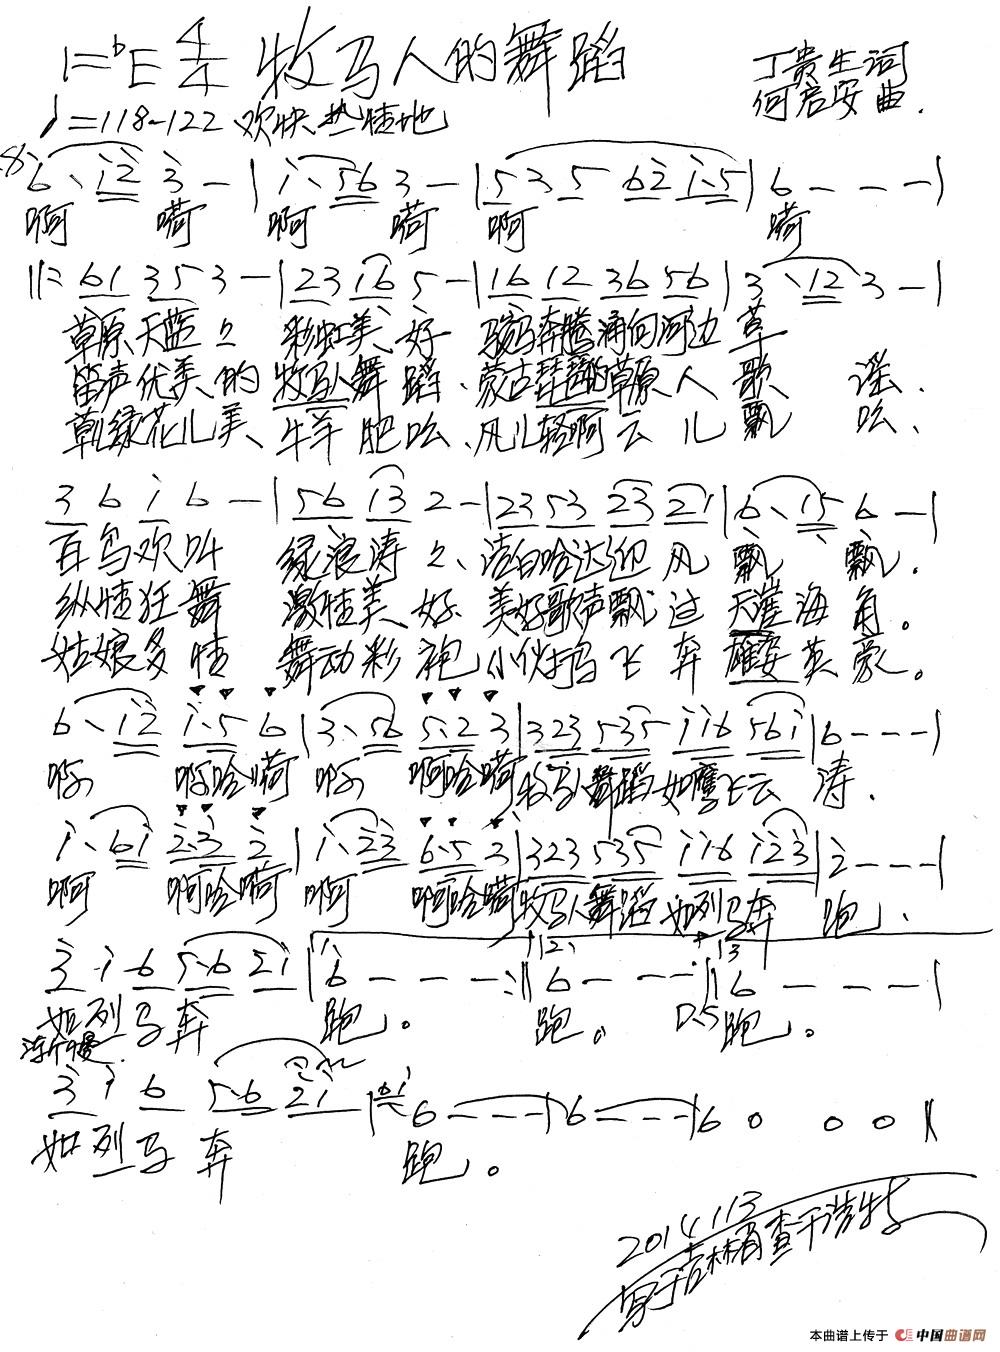 1=♭E 4/4 牧马人的舞蹈
丁贵生词
何启安曲.
♩=118-122 欢快热情地
6、i2 3 - | i、56 3 - | 5 3 5 62 i、5 | 6 - - - |
啊 嗬 啊 嗬 啊 嗬
||: 61 35 3 - | 23 16 5 - | 16 12 36 56 | 3、12 3 - |
草原天蓝々 彩虹美、好 骏马奔腾涌向河边草
笛声优美的牧马人舞蹈、蒙古琵琶的草原人歌谣、
草儿绿花儿美、牛羊肥吆、风儿轻啊云儿飘吆、
3 6 i 6 - | 56 i3 2 - | 23 53 23 21 | 6、15 6 - |
百鸟欢叫 绿浪涛々、洁白哈达迎风飘、飘.
纵情狂舞 激情美、好 美好歌声飘过天涯海角。
姑娘多情 舞动彩袍 小伙打马飞奔雄姿英豪。
6、i2 i、5 6 | 3、56 5、2 3 | 323 535 ii6 56i | 6 - - - |
啊 啊哈嗬 啊 啊哈嗬 牧马人舞蹈如鹰飞云涛.
i、6i 2、3 2 | i、23 6、5 3 | 323 535 ii6 i23 | 2 - - - |
啊 啊哈嗬 啊 啊哈嗬 牧马人舞蹈如列马奔跑、
3 i 6 5、6 2i | 6 - - - :|| 6 - - - :|| 6 - - - |
如列马奔 跑。 跑。 D.S 跑。
渐慢
3 i 6 5、6 2i | 6 - - - | 6 - - - | 6 0 0 0 ||
如列马奔 跑。
2014.1.13
写于吉林省查干浩特
本曲谱上传于 中国曲谱网